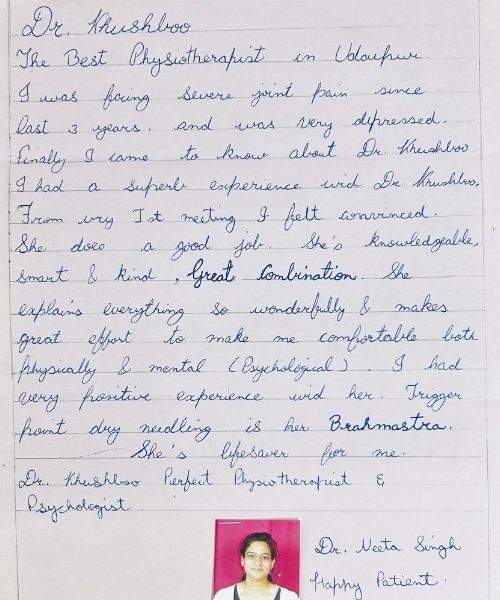 Dr. Khushboo
The Best Physiotherapist in Udaipur.
I was facing severe joint pain since
last 3 years. and was very depressed.
finally I came to know about Dr. Khushboo
I had a superb experience wid Dr. Khushboo,
From very Ist meeting I felt convinced.
She does a good job. She's knowledgeable,
smart & kind , Great Combination. She
explains everything so wonderfully & makes
great effort to make me comfortable both
physically & mental (Psychological). I had
very positive experience wid her. Trigger
point dry needling is her Brahmastra.
She's lifesaver for me.
Dr. Khushboo Perfect Physiotherapist &
Psychologist.
Dr. Neeta Singh
Happy Patient.